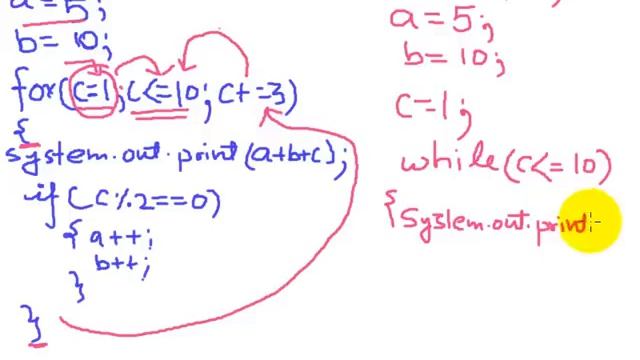 a=5;
b=10;
for(c=1;c<=10;c+=3)
{
system.out.print(a+b+c);
if(c%2==0)
{a++;
b++;
}
}
a=5;
b=10;
c=1;
while(c<=10)
{System.out.print